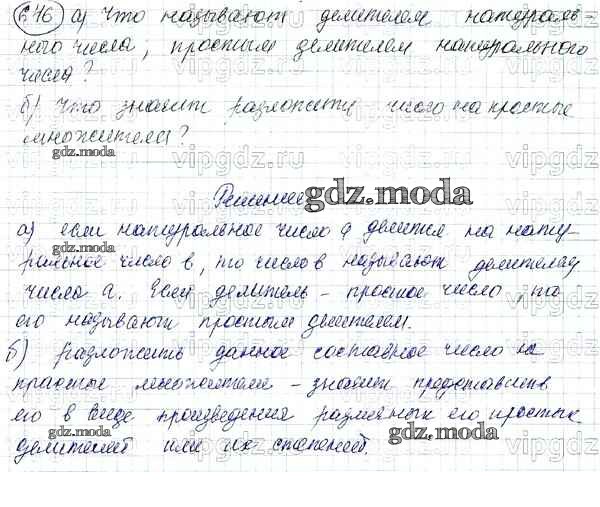 646 а) Что называют делителем натураль-
ного числа, простым делителем натурального
числа?
б) Что значит разложить число на простые
множители?
gdz.moda
Решение gdz.moda
а) если натуральное число a делится на нату-
gdz.moda
ральное число b, то число b называют делителем
числа a. Если делитель - простое число, то
его называют простым делителем.
б) Разложить данное составное число на
простые множители - значит представить
его в виде произведения различных его простых
gdz.moda gdz.moda
делителей или их степеней.
vipgdz.ru